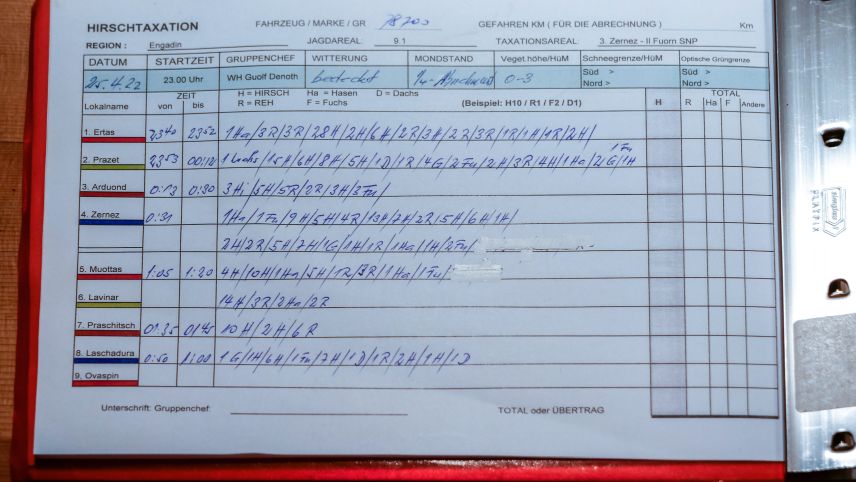 HIRSCHTAXATION FAHRZEUG / MARKE / GR GEFAHREN KM ( FÜR DIE ABRECHNUNG ) Km
REGION : Engadin JAGDAREAL: 9.1 TAXATIONSAREAL: 3. Zernez - Il Fuorn SNP
DATUM STARTZEIT GRUPPENCHEF WITTERUNG MONDSTAND Veget.höhe/HüM Schneegrenze/HüM Optische Grüngrenze
25.4.22 23.00 Uhr WH Guolf Denoth bedeckt 0-3 Süd > Süd >
Nord > Nord >
ZEIT H = HIRSCH Ha = Hasen D = Dachs TOTAL
Lokalname von bis R = REH F = Fuchs (Beispiel: H10 / R1 / F2 / D1) H R Ha F Andere
1. Ertas 2340 2352 1Ha/3R/3R/28H/2H/6H/2R/3H/2R/3R/1R/1H/1R/2H/
1Fu
2. Prazet 2353 00:12 1 Luchs/15H/6H/8H/5H/1D/1R/4G/2Fu/2H/3R/4H/1Ha/2G/1H
3. Arduond 0:13 0:30 3H/5H/5R/2R/3H/3Fu/
4. Zernez 0:31 1Ha/1Fu/9H/5H/4R/13H/7H/2R/5H/6H/1H/
2H/2R/5H/7H/1G/1H/1R/1Ha/1H/2Fu/
5. Muottas 1:05 1:20 4H/10H/1Ha/5H/1R/3R/1Ha/1Fu/
6. Lavinar 14H/3R/2Ha/2R
7. Praschitsch 01:35 01:45 10H/2H/6R
8. Laschadura 0:50 1:00 1G/1H/6H/1Fu/7H/1D/1R/2H/1H/1D
9. Ovaspin
Unterschrift: Gruppenchef: TOTAL oder ÜBERTRAG
PLAYFIX